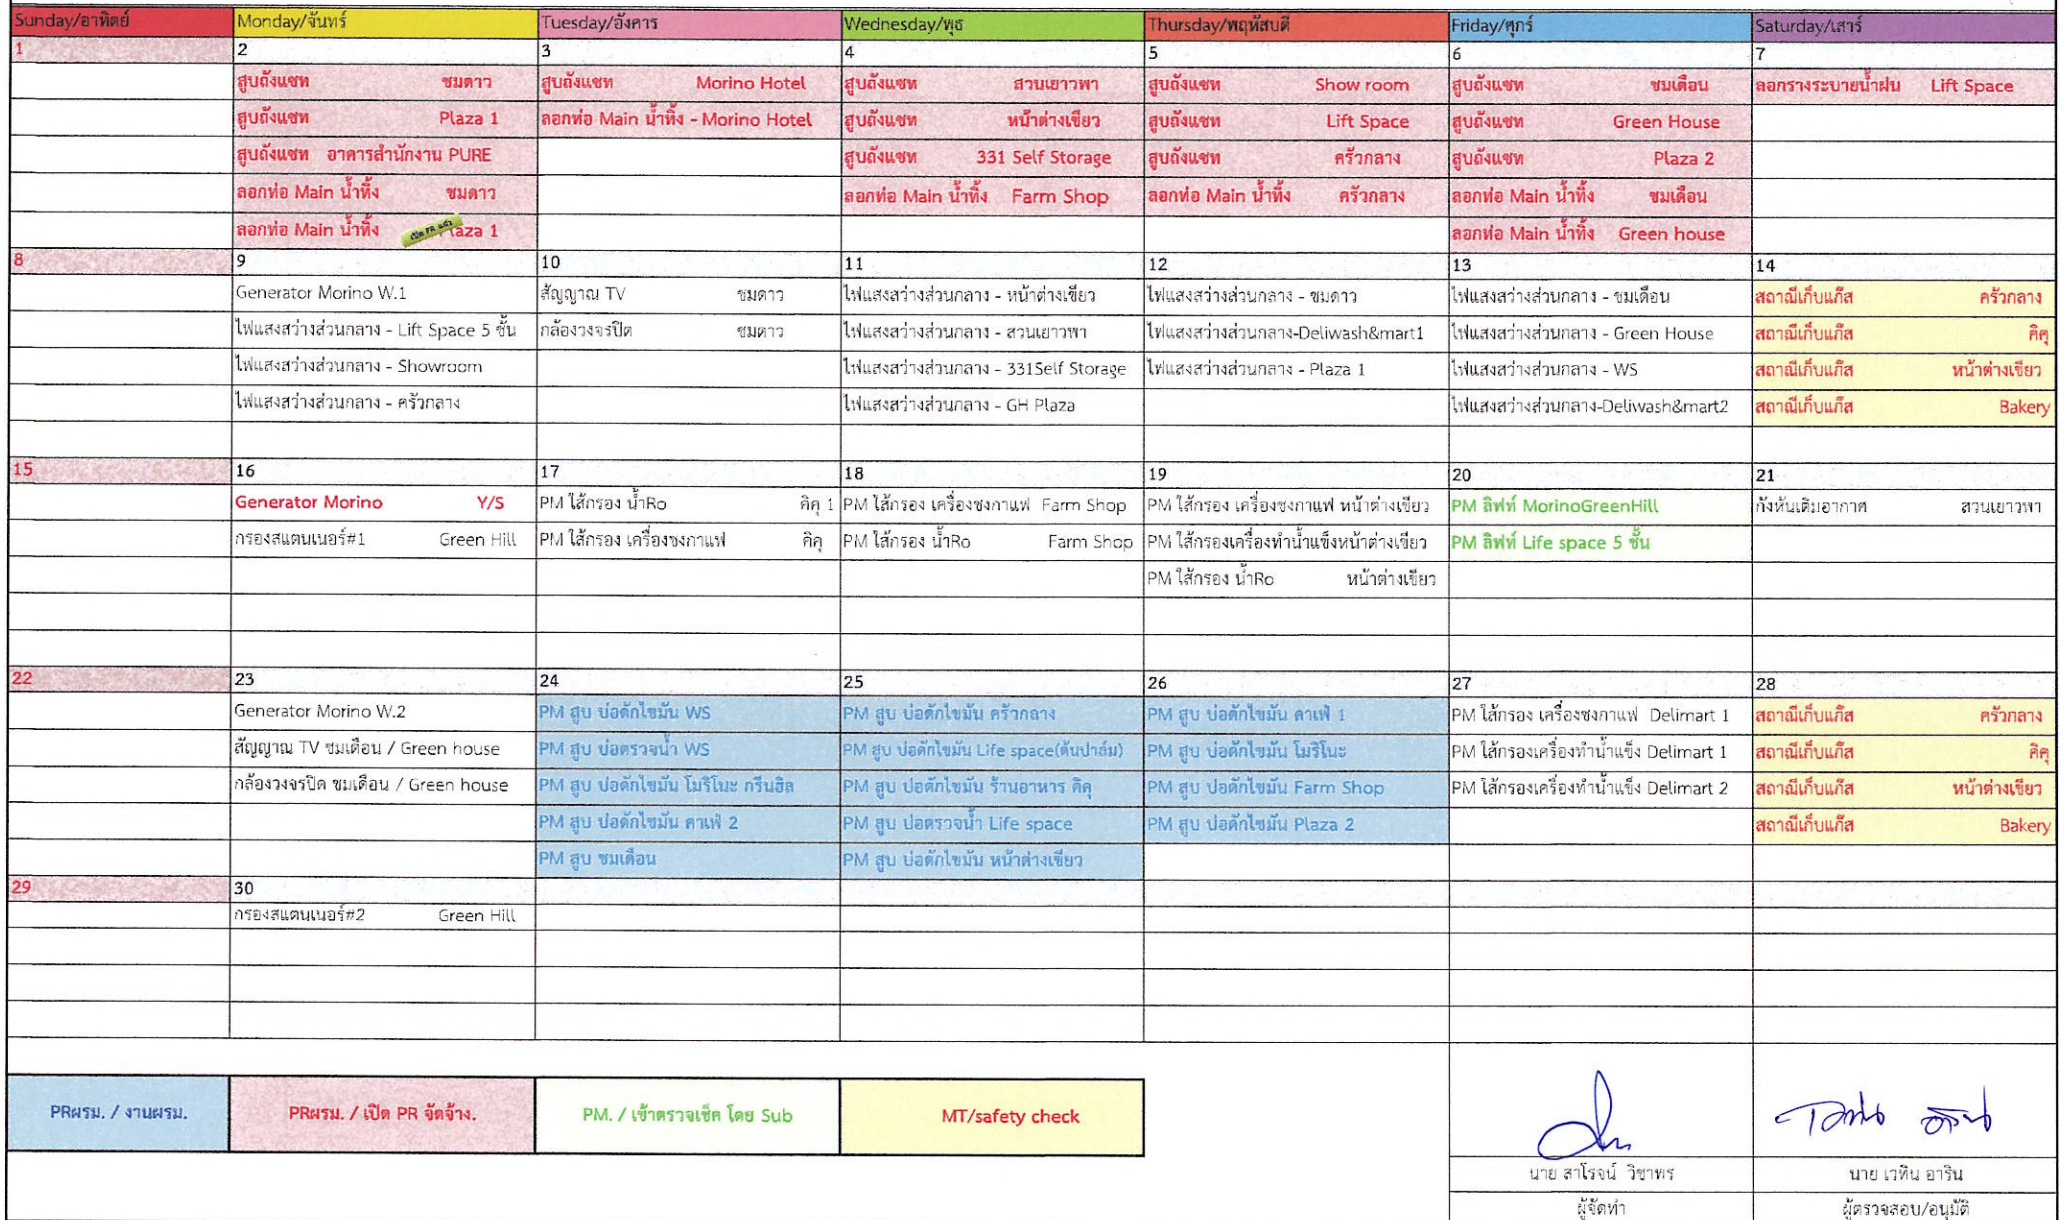 Sunday/อาทิตย์ Monday/จันทร์ Tuesday/อังคาร Wednesday/พุธ Thursday/พฤหัสบดี Friday/ศุกร์ Saturday/เสาร์
1 2 3 4 5 6 7
สูบถังแซท ชมดาว สูบถังแซท Morino Hotel สูบถังแซท สวนเยาวพา สูบถังแซท Show room สูบถังแซท ชมเดือน ลอกรางระบายน้ำฝน Lift Space
สูบถังแซท Plaza 1 ลอกท่อ Main น้ำทิ้ง - Morino Hotel สูบถังแซท หน้าต่างเขียว สูบถังแซท Lift Space สูบถังแซท Green House
สูบถังแซท อาคารสำนักงาน PURE สูบถังแซท 331 Self Storage สูบถังแซท ครัวกลาง สูบถังแซท Plaza 2
ลอกท่อ Main น้ำทิ้ง ชมดาว ลอกท่อ Main น้ำทิ้ง Farm Shop ลอกท่อ Main น้ำทิ้ง ครัวกลาง ลอกท่อ Main น้ำทิ้ง ชมเดือน
ลอกท่อ Main น้ำทิ้ง เปิด PR แล้ว laza 1 ลอกท่อ Main น้ำทิ้ง Green house
8 9 10 11 12 13 14
Generator Morino W.1 สัญญาณ TV ชมดาว ไฟแสงสว่างส่วนกลาง - หน้าต่างเขียว ไฟแสงสว่างส่วนกลาง - ชมดาว ไฟแสงสว่างส่วนกลาง - ชมเดือน สถานีเก็บแก๊ส ครัวกลาง
ไฟแสงสว่างส่วนกลาง - Lift Space 5 ชั้น กล้องวงจรปิด ชมดาว ไฟแสงสว่างส่วนกลาง - สวนเยาวพา ไฟแสงสว่างส่วนกลาง-Deliwash&mart1 ไฟแสงสว่างส่วนกลาง - Green House สถานีเก็บแก๊ส คิคุ
ไฟแสงสว่างส่วนกลาง - Showroom ไฟแสงสว่างส่วนกลาง - 331Self Storage ไฟแสงสว่างส่วนกลาง - Plaza 1 ไฟแสงสว่างส่วนกลาง - WS สถานีเก็บแก๊ส หน้าต่างเขียว
ไฟแสงสว่างส่วนกลาง - ครัวกลาง ไฟแสงสว่างส่วนกลาง - GH Plaza ไฟแสงสว่างส่วนกลาง-Deliwash&mart2 สถานีเก็บแก๊ส Bakery
15 16 17 18 19 20 21
Generator Morino Y/S PM ไส้กรอง น้ำRo คิคุ 1 PM ไส้กรอง เครื่องชงกาแฟ Farm Shop PM ไส้กรอง เครื่องชงกาแฟ หน้าต่างเขียว PM ลิฟท์ MorinoGreenHill กังหันเติมอากาศ สวนเยาวพา
กรองสแตนเนอร์#1 Green Hill PM ไส้กรอง เครื่องชงกาแฟ คิคุ PM ไส้กรอง น้ำRo Farm Shop PM ไส้กรองเครื่องทำน้ำแข็งหน้าต่างเขียว PM ลิฟท์ Life space 5 ชั้น
PM ไส้กรอง น้ำRo หน้าต่างเขียว
22 23 24 25 26 27 28
Generator Morino W.2 PM สูบ บ่อดักไขมัน WS PM สูบ บ่อดักไขมัน ครัวกลาง PM สูบ บ่อดักไขมัน คาเฟ่ 1 PM ไส้กรอง เครื่องชงกาแฟ Delimart 1 สถานีเก็บแก๊ส ครัวกลาง
สัญญาณ TV ชมเดือน / Green house PM สูบ บ่อตรวจน้ำ WS PM สูบ บ่อดักไขมัน Life space(ต้นปาล์ม) PM สูบ บ่อดักไขมัน โมริโนะ PM ไส้กรองเครื่องทำน้ำแข็ง Delimart 1 สถานีเก็บแก๊ส คิคุ
กล้องวงจรปิด ชมเดือน / Green house PM สูบ บ่อดักไขมัน โมริโนะ กรีนฮิล PM สูบ บ่อดักไขมัน ร้านอาหาร คิคุ PM สูบ บ่อดักไขมัน Farm Shop PM ไส้กรองเครื่องทำน้ำแข็ง Delimart 2 สถานีเก็บแก๊ส หน้าต่างเขียว
PM สูบ บ่อดักไขมัน คาเฟ่ 2 PM สูบ บ่อตรวจน้ำ Life space PM สูบ บ่อดักไขมัน Plaza 2 สถานีเก็บแก๊ส Bakery
PM สูบ ชมเดือน PM สูบ บ่อดักไขมัน หน้าต่างเขียว
29 30
กรองสแตนเนอร์#2 Green Hill
PRผรม. / งานผรม. PRผรม. / เปิด PR จัดจ้าง. PM. / เข้าตรวจเช็ค โดย Sub MT/safety check
นาย สาโรจน์ วิชาพร นาย เวทิน อาริน
ผู้จัดทำ ผู้ตรวจสอบ/อนุมัติ